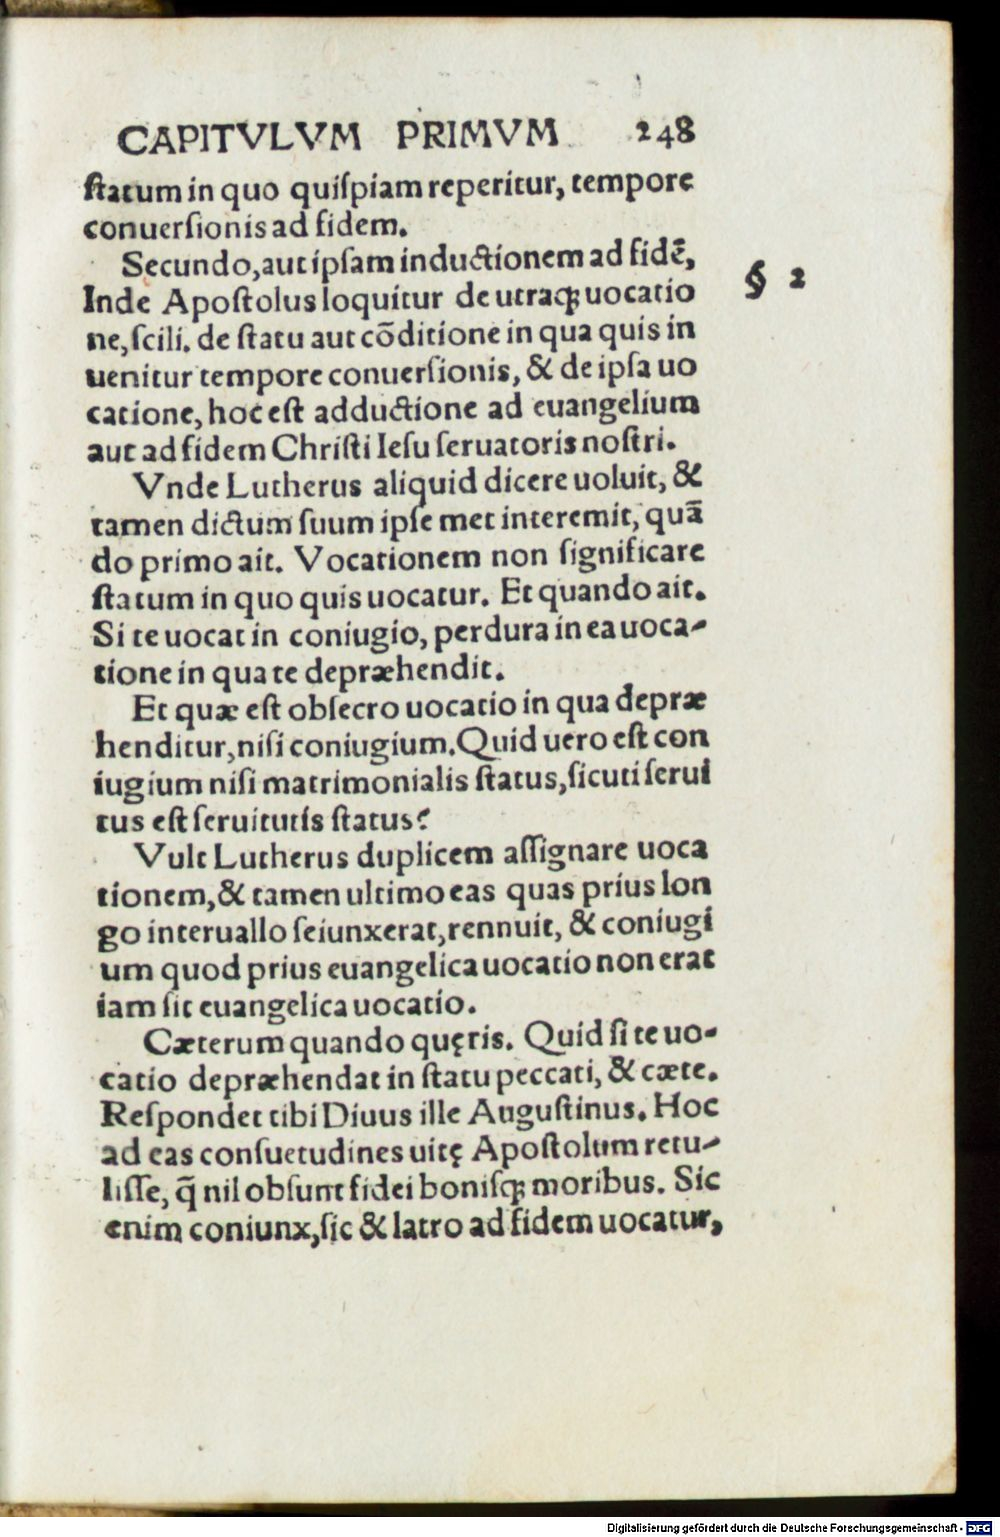 CAPITVLVM PRIMVM 248
ſtatum in quo quiſpiam reperitur, tempore
conuerſionis ad fidem.
Secundo, aut ipſam inductionem ad fidẽ, § 2
Inde Apoſtolus loquitur de utraqꝫ uocatio
ne, ſcili. de ſtatu aut cõditione in qua quis in
uenitur tempore conuerſionis, & de ipſa uo
catione, hoc eſt adductione ad euangelium
aut ad fidem Chriſti Ieſu ſeruatoris noſtri.
Vnde Lutherus aliquid dicere uoluit, &
tamen dictum ſuum ipſe met interemit, quã
do primo ait. Vocationem non ſignificare
ſtatum in quo quis uocatur. Et quando ait.
Si te uocat in coniugio, perdura in ea uoca-
tione in qua te depræhendit.
Et quæ eſt obſecro uocatio in qua depræ
henditur, niſi coniugium. Quid uero eſt con
iugium niſi matrimonialis ſtatus, ſicuti ſerui
tus eſt ſeruitutis ſtatus?
Vult Lutherus duplicem aſſignare uoca
tionem, & tamen ultimo eas quas prius lon
go interuallo ſeiunxerat, rennuit, & coniugi
um quod prius euangelica uocatio non erat
iam ſit euangelica uocatio.
Cæterum quando quęris. Quid ſi te uo-
catio depræhendat in ſtatu peccati, & cæte.
Reſpondet tibi Diuus ille Auguſtinus. Hoc
ad eas conſuetudines uitę Apoſtolum retu-
liſſe, q̃ nil obſunt fidei boniſqꝫ moribus. Sic
enim coniunx, ſic & latro ad fidem uocatur,
Digitalisierung gefördert durch die Deutsche Forschungsgemeinschaft - DFG